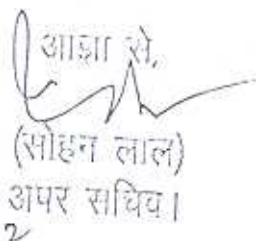 आज्ञा से,
(सोहन लाल)
अपर सचिव।
2